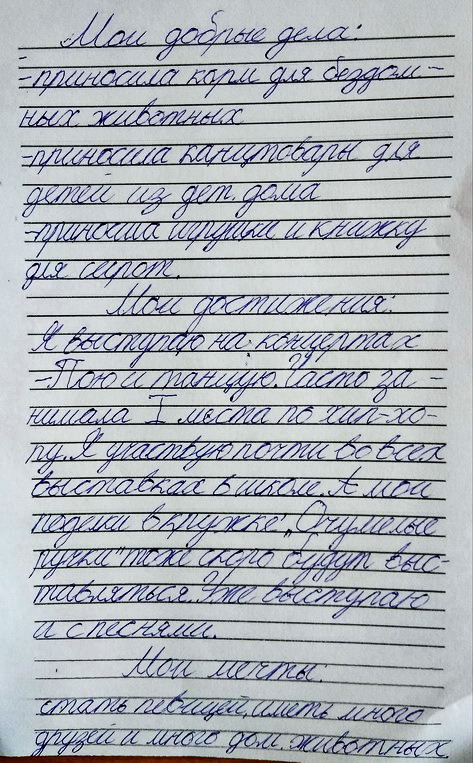 Мои добрые дела:
-приносила корм для бездом-
ных животных
-приносила канцтовары для
детей из дет. дома
-приносила игрушки и книжку
для сирот.
Мои достижения:
Я выступаю на концертах
-Пою и танцую. Часто за-
нимала I места по хип-хо-
пу. Я участвую почти во всех
выставках в школе. А мои
поделки в кружке „Очумелые
ручки" тоже скоро будут выс-
тавляться. Уже выступаю
и с песнями.
Мои мечты:
стать певицей, иметь много
друзей и много дом. животных